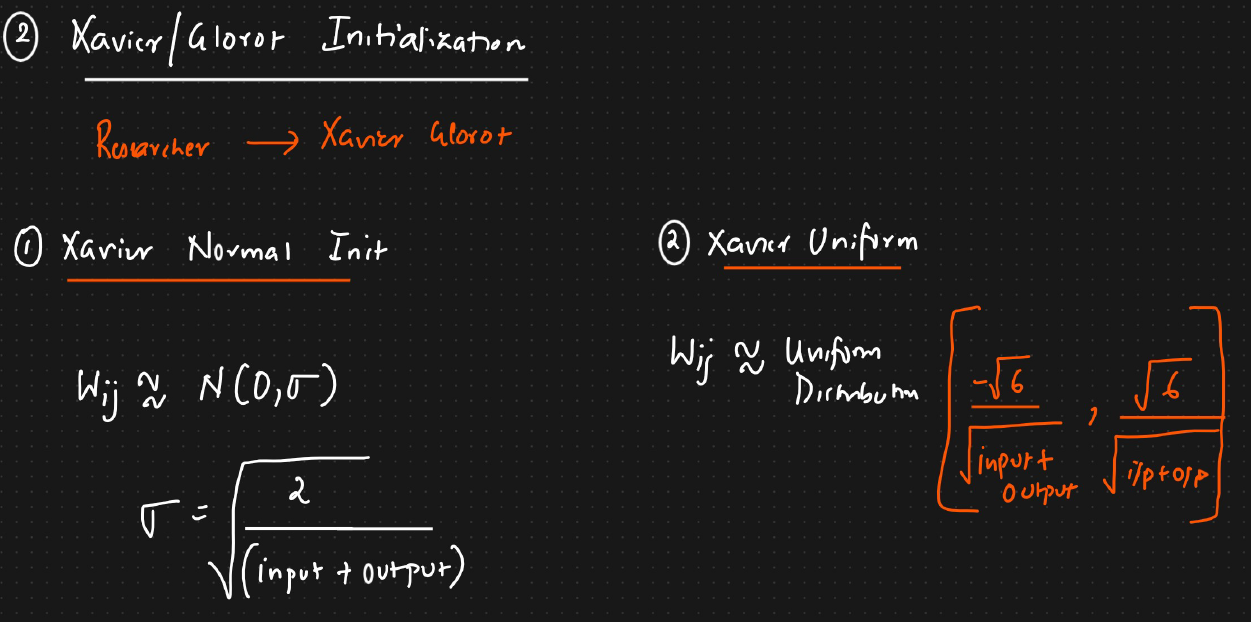 ② Xavier/Glorot Initialization
Researcher → Xavier Glorot
① Xavier Normal Init
Wij ≈ N(0,σ)
σ = √(2 / (input + output))
② Xavier Uniform
Wij ≈ Uniform
Distribution
[-√6 / √(input + output) , √6 / √(i/p + o/p)]